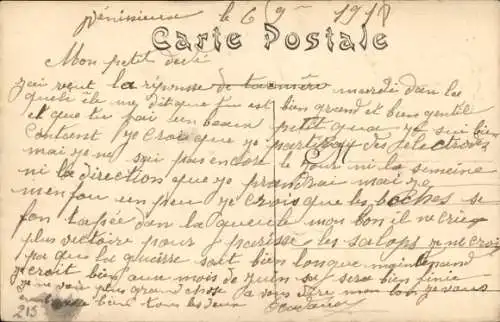 Vénissieux le 6 9 1917
Carte Postale
Mon petit
j'ai reçut la réponse de ta mère mardi dans la
quele île me dit que tu est bien grand et bien gentil
et que tu fai un beau petit je sui bien
content je croi que je partirai des
mai je ne sai pas encore le jour ni la semeine
ni la direction que je prandrai mai je
men fou un peu je crois que les boches se
fon tapée dan la gueule mon ton il ne crie
plus victoire pour parisse les salops je ne croi
pa que la guerre soit bien longue maintenand
je croit bien aux mois de juin sa sera bien finie
je ne voi plus grand chose a vous dire mon ton je vous
embrasse bien tous les deux
215